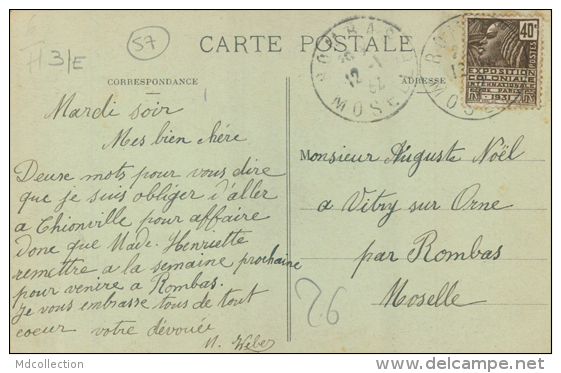 57
CARTE POSTALE
3/E
CORRESPONDANCE
ADRESSE
ROMBAS
12 -1
32
MOSELLE
40c
POSTES
EXPOSITION
COLONIALE
INTERNATIONALE
PARIS
1931
Mardi soir
Mes bien chére
Deuse mots pour vous dire
que je suis obliger d'aller
a Thionville pour affaire
donc que Made. Henriette
remettre a la semaine prochaine
pour venire a Rombas.
Je vous embrasse tous de tout
coeur votre dévouée
M. Weber
Monsieur Auguste Noël
a Vitry sur Orne
par Rombas
Moselle
26
Mdcollection
www.delcampe.net